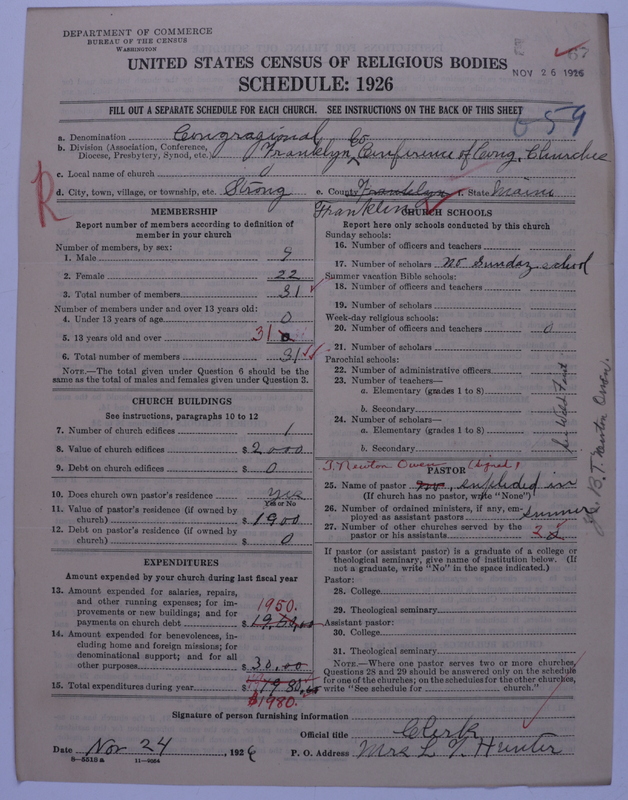 DEPARTMENT OF COMMERCE
BUREAU OF THE CENSUS
WASHINGTON
NOV 26 1926
UNITED STATES CENSUS OF RELIGIOUS BODIES
SCHEDULE: 1926
FILL OUT A SEPARATE SCHEDULE FOR EACH CHURCH. SEE INSTRUCTIONS ON THE BACK OF THIS SHEET
659
a. Denomination Congragional
b. Division (Association, Conference, Diocese, Presbytery, Synod, etc.) Franklyn Co Conference of Cong. Churches
c. Local name of church
R
d. City, town, village, or township, etc. Strong e. County Franklyn f. State Maine
Franklin
MEMBERSHIP
Report number of members according to definition of member in your church
Number of members, by sex:
1. Male 9
2. Female 22
3. Total number of members 31
Number of members under and over 13 years old:
4. Under 13 years of age 0
5. 13 years old and over 31
6. Total number of members 31
NOTE.—The total given under Question 6 should be the same as the total of males and females given under Question 3.
CHURCH BUILDINGS
See instructions, paragraphs 10 to 12
7. Number of church edifices 1
8. Value of church edifices $2000
9. Debt on church edifices $0
10. Does church own pastor's residence Yes
Yes or No
11. Value of pastor's residence (if owned by church) $1900
12. Debt on pastor's residence (if owned by church) $0
EXPENDITURES
Amount expended by your church during last fiscal year
13. Amount expended for salaries, repairs, and other running expenses; for improvements or new buildings; and for payments on church debt 1950. $1950.00
14. Amount expended for benevolences, including home and foreign missions; for denominational support; and for all other purposes $30.00
15. Total expenditures during year $1980.00
$1980.
CHURCH SCHOOLS
Report here only schools conducted by this church
Sunday schools:
16. Number of officers and teachers
17. Number of scholars No Sunday school
Summer vacation Bible schools:
18. Number of officers and teachers
19. Number of scholars
Week-day religious schools:
20. Number of officers and teachers 0
21. Number of scholars
Parochial schools:
22. Number of administrative officers
23. Number of teachers—
a. Elementary (grades 1 to 8)
b. Secondary
24. Number of scholars—
a. Elementary (grades 1 to 8)
b. Secondary
T. Newton Owen (Signed)
PASTOR
25. Name of pastor no, supplied in
(If church has no pastor, write "None")
26. Number of ordained ministers, if any, employed as assistant pastors summer
27. Number of other churches served by the pastor or his assistants 2
If pastor (or assistant pastor) is a graduate of a college or theological seminary, give name of institution below. (If not a graduate, write "No" in the space indicated.)
Pastor:
28. College
29. Theological seminary
Assistant pastor:
30. College
31. Theological seminary
NOTE.—Where one pastor serves two or more churches, Questions 28 and 29 should be answered only on the schedule for one of the churches; on the schedules for the other churches, write "See schedule for church."
Signature of person furnishing information
Official title Clerk
Date Nov 24, 1926 P. O. Address Mrs L. T. Hunter
8—5518a 11—9064